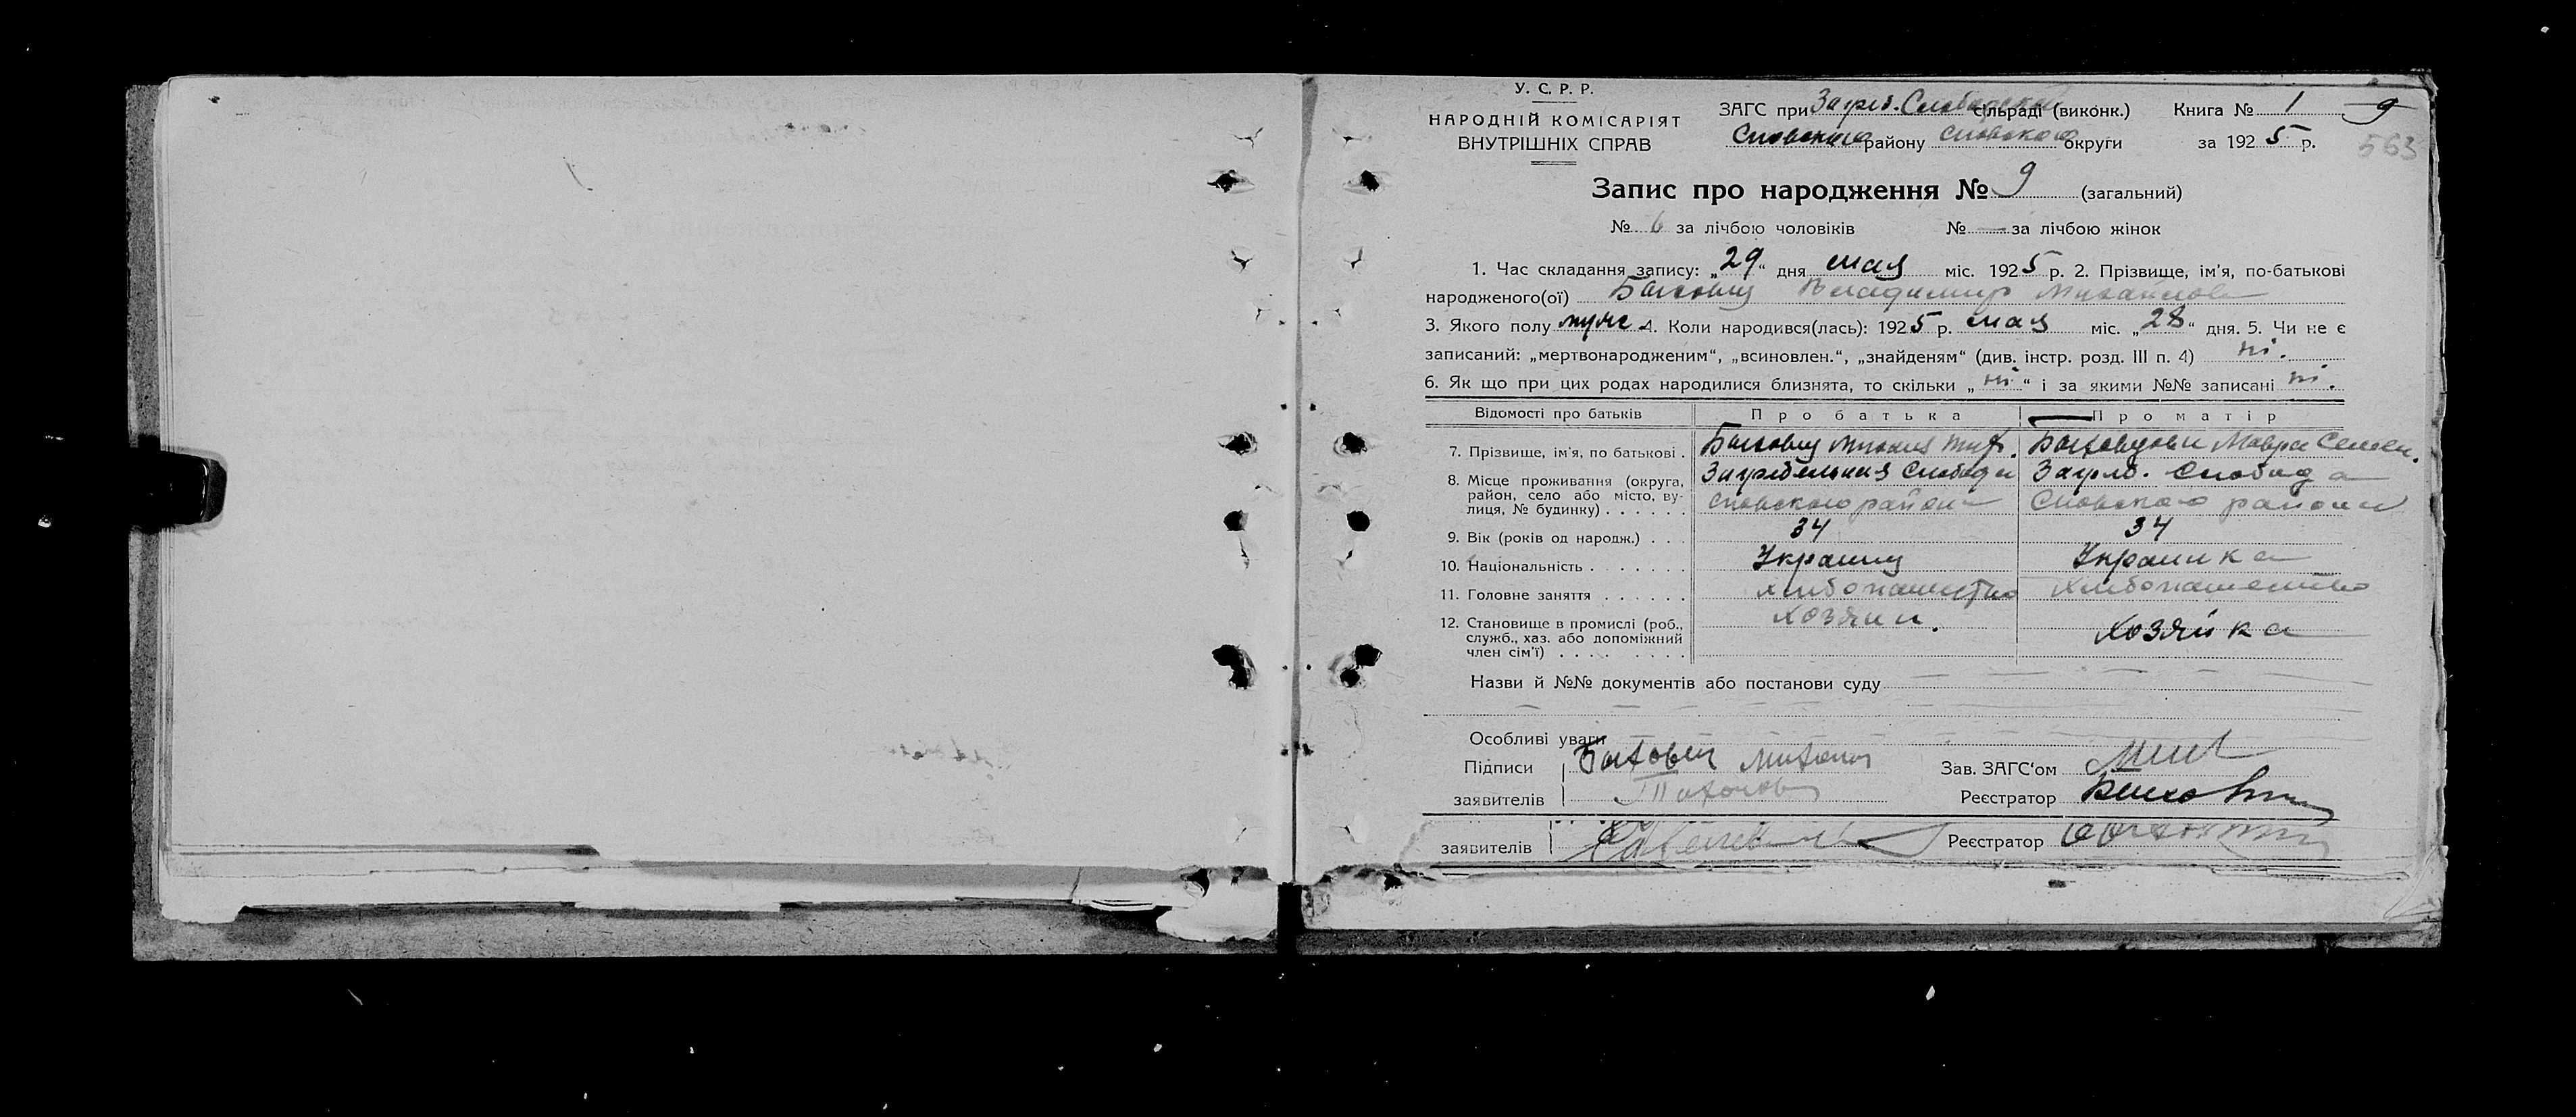 У. С. Р. Р.
НАРОДНІЙ КОМІСАРІЯТ
ВНУТРІШНІХ СПРАВ
ЗАГС при Загреб. Слобадской сільраді (виконк.) Книга № 1 9
Сновского району Сновского округи за 1925 р. 563
Запис про народження № 9 (загальний)
№ 6 за лічбою чоловіків № — за лічбою жінок
1. Час складання запису: „29“ дня мая міс. 1925 р. 2. Прізвище, ім'я, по-батькові
народженого(ої) Владимир Михайлов
3. Якого полу муж 4. Коли народився(лась): 1925 р. мая міс. „28“ дня. 5. Чи не є
записаний: „мертвонародженим“, „всиновлен.“, „знайденям“ (див. інстр. розд. III п. 4) ні.
6. Як що при цих родах народилися близнята, то скільки „ні“ і за якими №№ записані ні.
Відомості про батьків Про батька Про матір
7. Прізвище, ім'я, по батькові . Михаил Мавра Семен.
8. Місце проживання (округа, Загребельная Слобода Загреб. Слобода
район, село або місто, ву- Сновского района Сновского района
лиця, № будинку) . . . . . .
9. Вік (років од народж.) . . . 34 34
10. Національність . . . . . . . Украинц Украинка
11. Головне заняття . . . . . . хлибопашество хлибопашество
12. Становище в промислі (роб., хозяин. хозяйка
служб., хаз. або допоміжний
член сім'ї) . . . . . . . . .
Назви й №№ документів або постанови суду
Особливі уваги
Підписи Михаил Зав. ЗАГС'ом
заявителів Реєстратор
заявителів Реєстратор